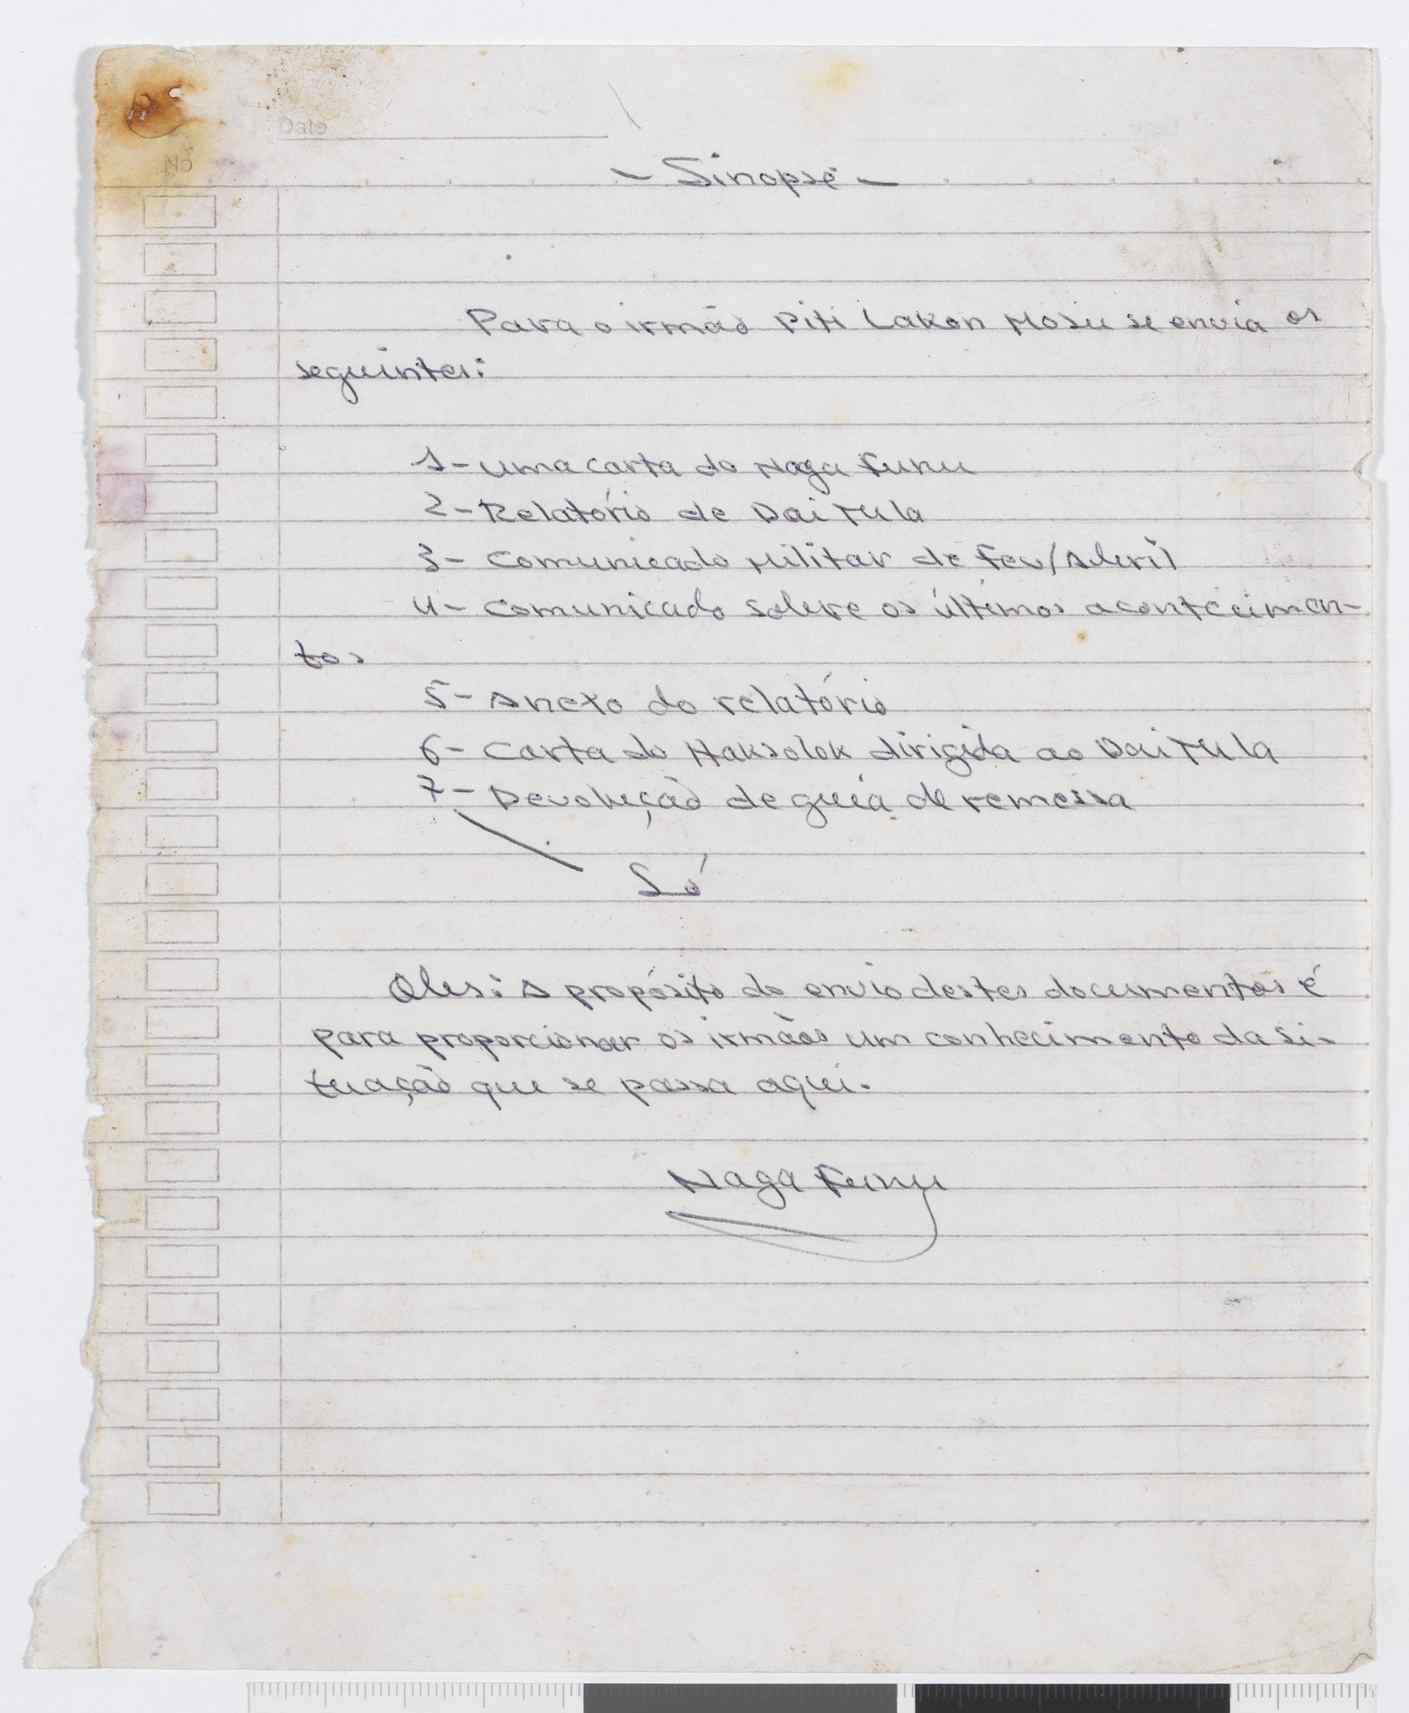 Date
No
- Sinopse -
Para o irmão Piti Lakon Mosu se envia os
seguintes:
1- Uma carta do Naga Funu
2- Relatório de Dai Tula
3- Comunicado Militar de Fev/Abril
4- Comunicado sobre os últimos acontecimen-
tos
5- Anexo do relatório
6- Carta do Haksolok dirigida ao Dai Tula
7- Devolução de guia de remessa
Só
Obs: A propósito do envio destes documentos é
para proporcionar os irmãos um conhecimento da si-
tuação que se passa aqui.
Naga Funu